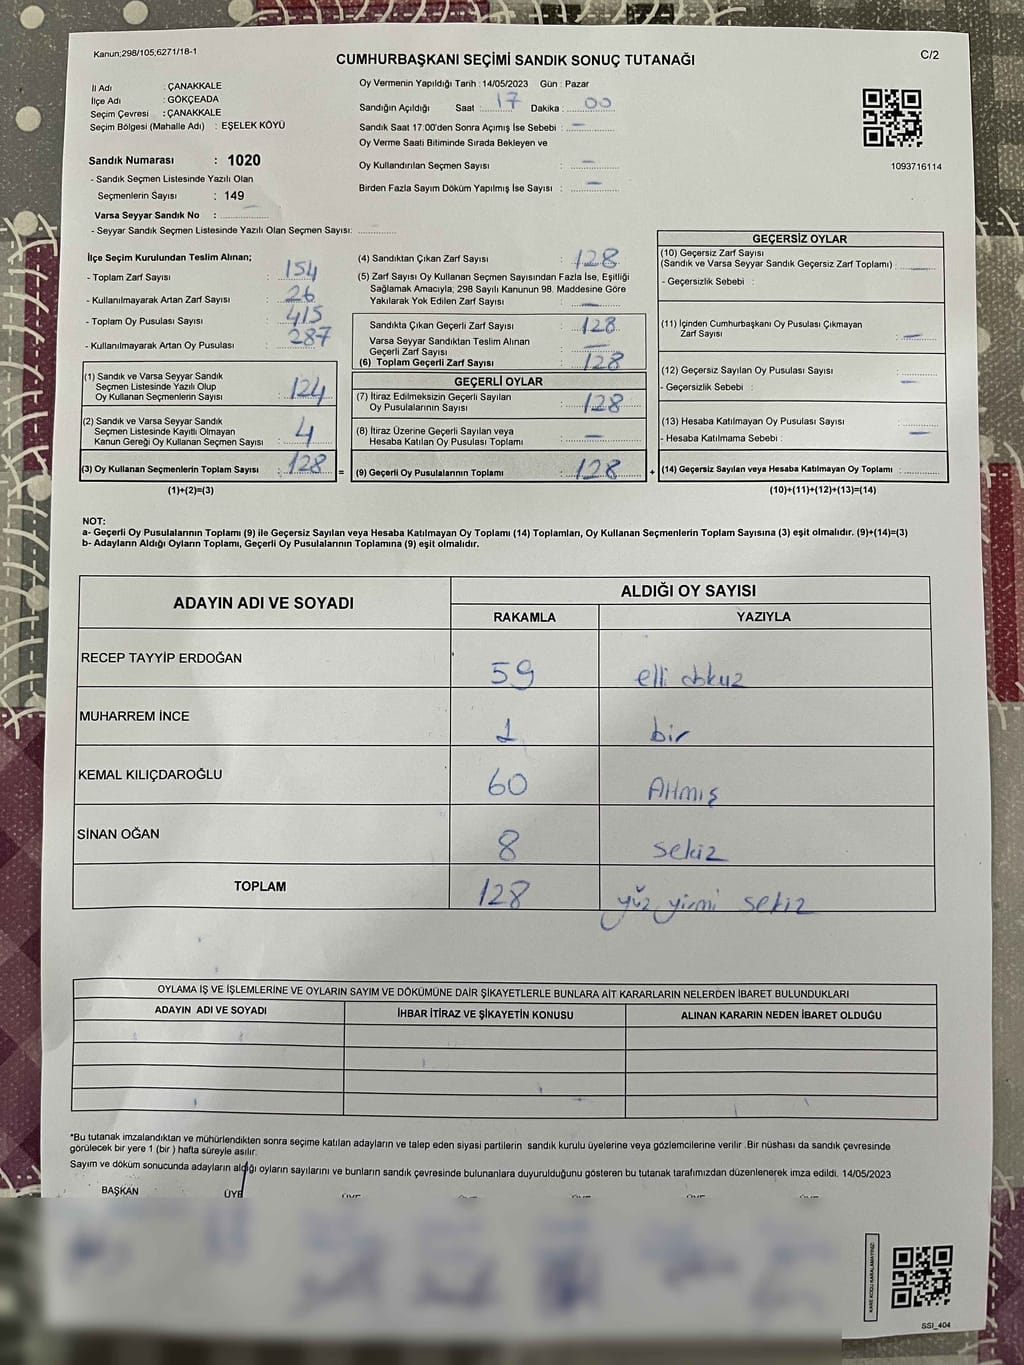 Kanun;298/105,6271/18-1
CUMHURBAŞKANI SEÇİMİ SANDIK SONUÇ TUTANAĞI
C/2
İl Adı : ÇANAKKALE
İlçe Adı : GÖKÇEADA
Seçim Çevresi : ÇANAKKALE
Seçim Bölgesi (Mahalle Adı) : EŞELEK KÖYÜ
Oy Vermenin Yapıldığı Tarih : 14/05/2023 Gün : Pazar
Sandığın Açıldığı Saat : 17 Dakika : 00
Sandık Saat 17:00'den Sonra Açımış İse Sebebi : —
Oy Verme Saati Bitiminde Sırada Bekleyen ve
Oy Kullandırılan Seçmen Sayısı : —
Birden Fazla Sayım Döküm Yapılmış İse Sayısı : —
1093716114
Sandık Numarası : 1020
- Sandık Seçmen Listesinde Yazılı Olan
Seçmenlerin Sayısı : 149
Varsa Seyyar Sandık No :
- Seyyar Sandık Seçmen Listesinde Yazılı Olan Seçmen Sayısı:
İlçe Seçim Kurulundan Teslim Alınan;
- Toplam Zarf Sayısı : 154
- Kullanılmayarak Artan Zarf Sayısı : 26
- Toplam Oy Pusulası Sayısı : 415
- Kullanılmayarak Artan Oy Pusulası : 287
(1) Sandık ve Varsa Seyyar Sandık
Seçmen Listesinde Yazılı Olup
Oy Kullanan Seçmenlerin Sayısı : 124
(2) Sandık ve Varsa Seyyar Sandık
Seçmen Listesinde Kayıtlı Olmayan
Kanun Gereği Oy Kullanan Seçmen Sayısı : 4
(3) Oy Kullanan Seçmenlerin Toplam Sayısı : 128
(1)+(2)=(3)
(4) Sandıktan Çıkan Zarf Sayısı : 128
(5) Zarf Sayısı Oy Kullanan Seçmen Sayısından Fazla İse, Eşitliği
Sağlamak Amacıyla, 298 Sayılı Kanunun 98. Maddesine Göre
Yakılarak Yok Edilen Zarf Sayısı : —
Sandıkta Çıkan Geçerli Zarf Sayısı : 128
Varsa Seyyar Sandıktan Teslim Alınan
Geçerli Zarf Sayısı : —
(6) Toplam Geçerli Zarf Sayısı : 128
GEÇERLİ OYLAR
(7) İtiraz Edilmeksizin Geçerli Sayılan
Oy Pusulalarının Sayısı : 128
(8) İtiraz Üzerine Geçerli Sayılan veya
Hesaba Katılan Oy Pusulası Toplamı : —
= (9) Geçerli Oy Pusulalarının Toplamı : 128 +
GEÇERSİZ OYLAR
(10) Geçersiz Zarf Sayısı
(Sandık ve Varsa Seyyar Sandık Geçersiz Zarf Toplamı) : —
- Geçersizlik Sebebi :
(11) İçinden Cumhurbaşkanı Oy Pusulası Çıkmayan
Zarf Sayısı : —
(12) Geçersiz Sayılan Oy Pusulası Sayısı :
- Geçersizlik Sebebi : —
(13) Hesaba Katılmayan Oy Pusulası Sayısı :
- Hesaba Katılmama Sebebi : —
(14) Geçersiz Sayılan veya Hesaba Katılmayan Oy Toplamı :
(10)+(11)+(12)+(13)=(14)
NOT:
a- Geçerli Oy Pusulalarının Toplamı (9) ile Geçersiz Sayılan veya Hesaba Katılmayan Oy Toplamı (14) Toplamları, Oy Kullanan Seçmenlerin Toplam Sayısına (3) eşit olmalıdır. (9)+(14)=(3)
b- Adayların Aldığı Oyların Toplamı, Geçerli Oy Pusulalarının Toplamına (9) eşit olmalıdır.
ADAYIN ADI VE SOYADI
ALDIĞI OY SAYISI
RAKAMLA YAZIYLA
RECEP TAYYİP ERDOĞAN 59 elli dokuz
MUHARREM İNCE 1 bir
KEMAL KILIÇDAROĞLU 60 Altmış
SİNAN OĞAN 8 sekiz
TOPLAM 128 yüz yirmi sekiz
OYLAMA İŞ VE İŞLEMLERİNE VE OYLARIN SAYIM VE DÖKÜMÜNE DAİR ŞİKAYETLERLE BUNLARA AİT KARARLARIN NELERDEN İBARET BULUNDUKLARI
ADAYIN ADI VE SOYADI İHBAR İTİRAZ VE ŞİKAYETİN KONUSU ALINAN KARARIN NEDEN İBARET OLDUĞU
*Bu tutanak imzalandıktan ve mühürlendikten sonra seçime katılan adayların ve talep eden siyasi partilerin sandık kurulu üyelerine veya gözlemcilerine verilir .Bir nüshası da sandık çevresinde
görülecek bir yere 1 (bir ) hafta süreyle asılır.
Sayım ve döküm sonucunda adayların aldığı oyların sayılarını ve bunların sandık çevresinde bulunanlara duyurulduğunu gösteren bu tutanak tarafımızdan düzenlenerek imza edildi. 14/05/2023
BAŞKAN ÜYE
KARE KODU KARALAMAYINIZ!
SSI_404